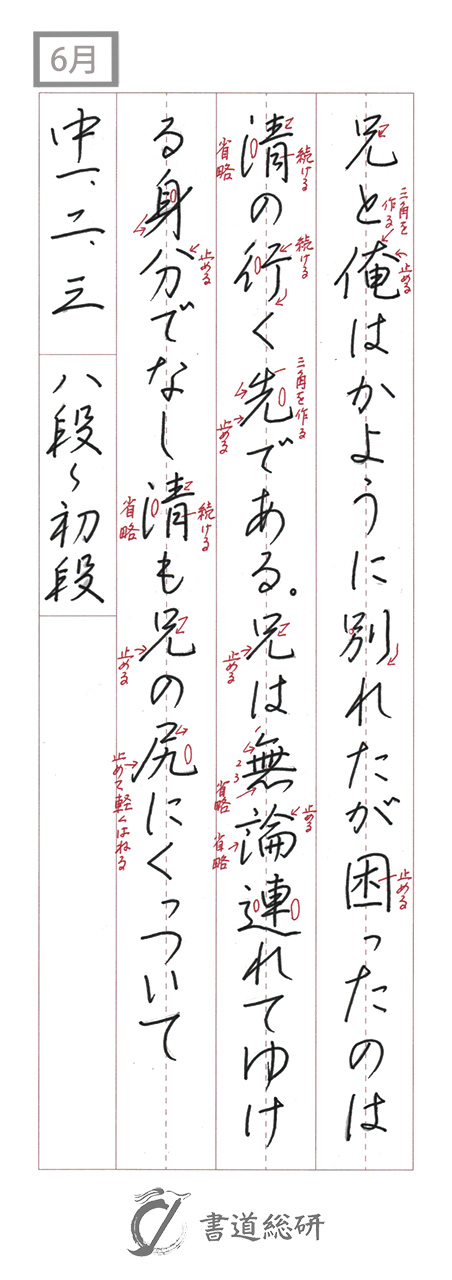 6月
兄と俺はかように別れたが困ったのは
三角を作る
止める
止める
清の行く先である。兄は無論連れてゆけ
続ける
省略
続ける
三角を作る
止める
止める
2
3
省略
止める
省略
る身分でなし清も兄の尻にくっついて
止める
続ける
省略
止める
止めて軽くはねる
中一、二、三
八段〜初段
書道総研